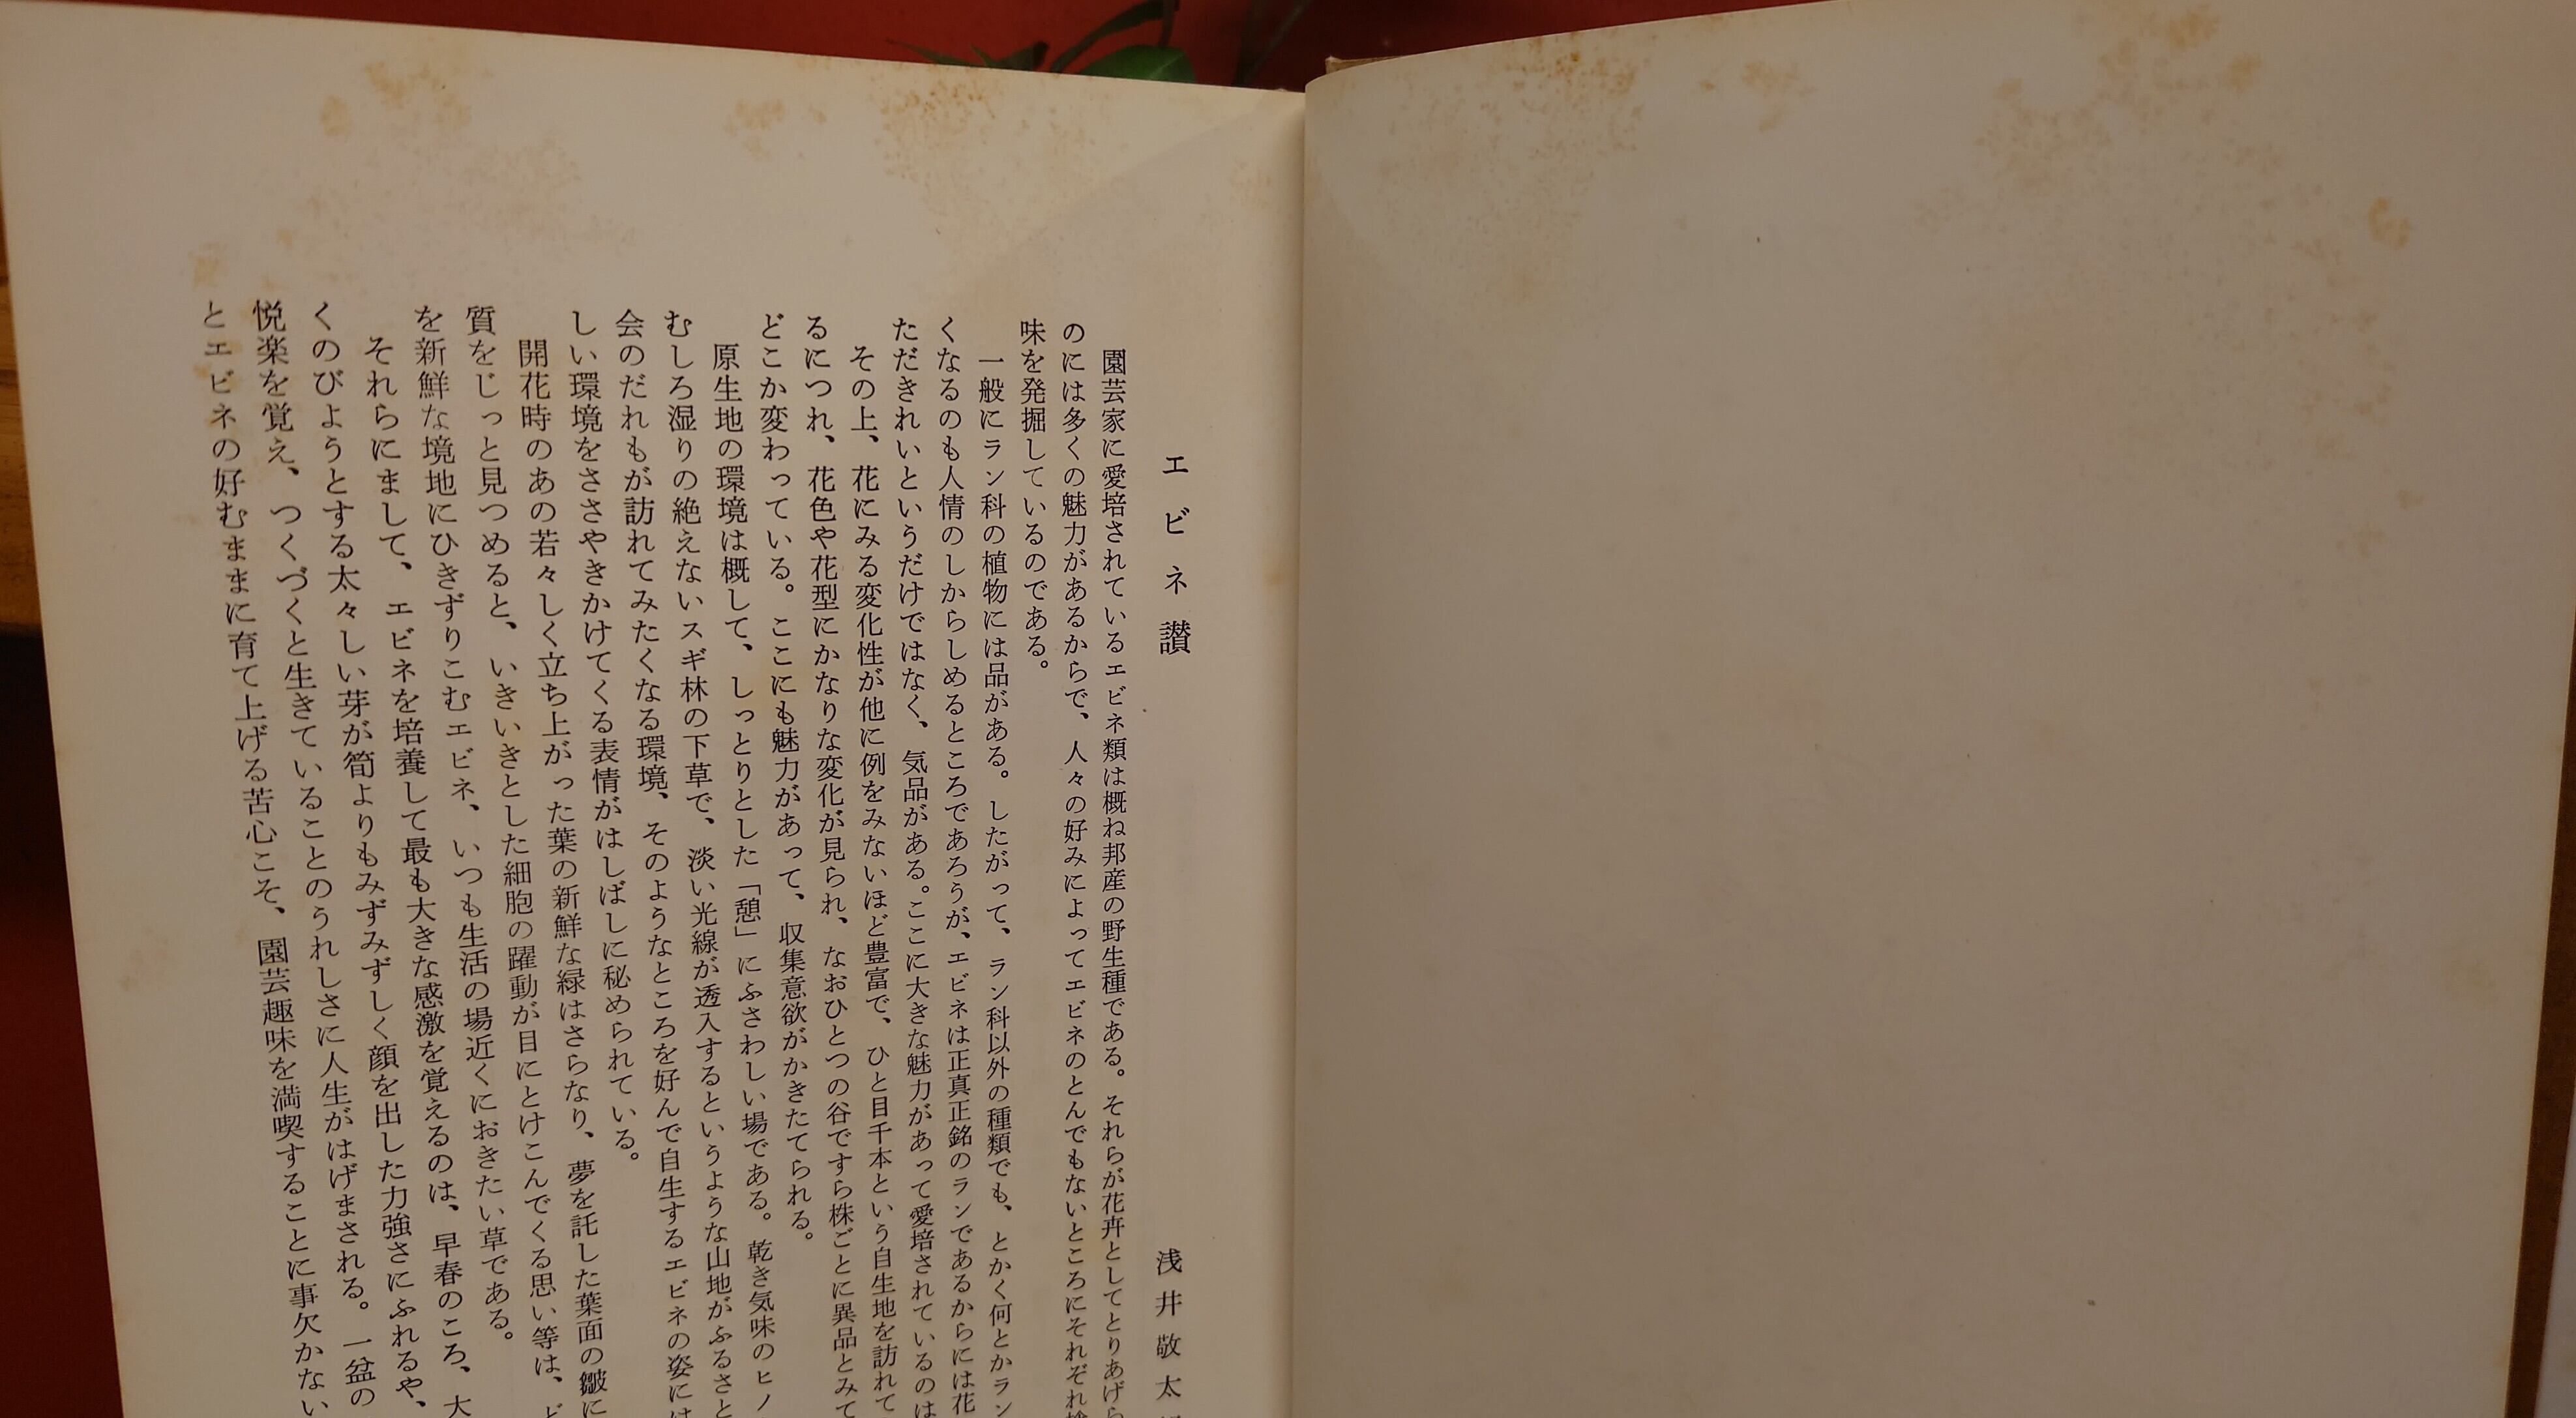 エビネ讃
浅井敬太
園芸家に愛培されているエビネ類は概ね邦産の野生種である。それらが花卉としてとりあげら
のには多くの魅力があるからで、人々の好みによってエビネのとんでもないところにそれぞれ
味を発掘しているのである。
一般にラン科の植物には品がある。したがって、ラン科以外の種類でも、とかく何とかラン
くなるのも人情のしからしめるところであろうが、エビネは正真正銘のランであるからには花
ただきれいというだけではなく、気品がある。ここに大きな魅力があって愛培されているのは
その上、花にみる変化性が他に例をみないほど豊富で、ひと目千本という自生地を訪れて
るにつれ、花色や花型にかなりな変化が見られ、なおひとつの谷ですら株ごとに異品とみて
どこか変わっている。ここにも魅力があって、収集意欲がかきたてられる。
原生地の環境は概して、しっとりとした「憩」にふさわしい場である。乾き気味のヒノ
むしろ湿りの絶えないスギ林の下草で、淡い光線が透入するというような山地がふるさと
会のだれもが訪れてみたくなる環境、そのようなところを好んで自生するエビネの姿には
しい環境をささやきかけてくる表情がはしばしに秘められている。
開花時のあの若々しく立ち上がった葉の新鮮な緑はさらなり、夢を託した葉面の皺に
質をじっと見つめると、いきいきとした細胞の躍動が目にとけこんでくる思い等は、ど
を新鮮な境地にひきずりこむエビネ、いつも生活の場近くにおきたい草である。
それらにまして、エビネを培養して最も大きな感激を覚えるのは、早春のころ、大
くのびようとする太々しい芽が筍よりもみずみずしく顔を出した力強さにふれるや、
悦楽を覚え、つくづくと生きていることのうれしさに人生がはげまされる。一盆の
とエビネの好むままに育て上げる苦心こそ、園芸趣味を満喫することに事欠かない